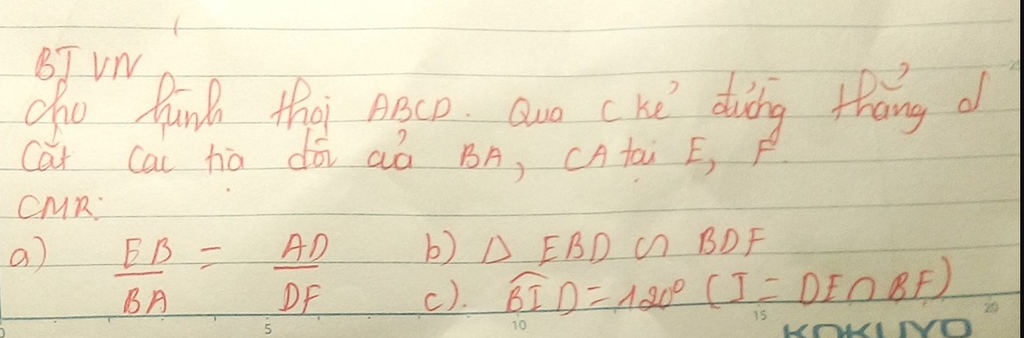 BT VN
Cho hình thoi ABCD. Qua C kẻ đường thẳng d
Cắt các tia đối của BA, CA tại E, F.
CMR:
a) EB/BA = AD/DF b) Δ EBD ∽ BDF
c). BID = 120° (I = DE ∩ BF)
5 10 15 20
KOKUYO